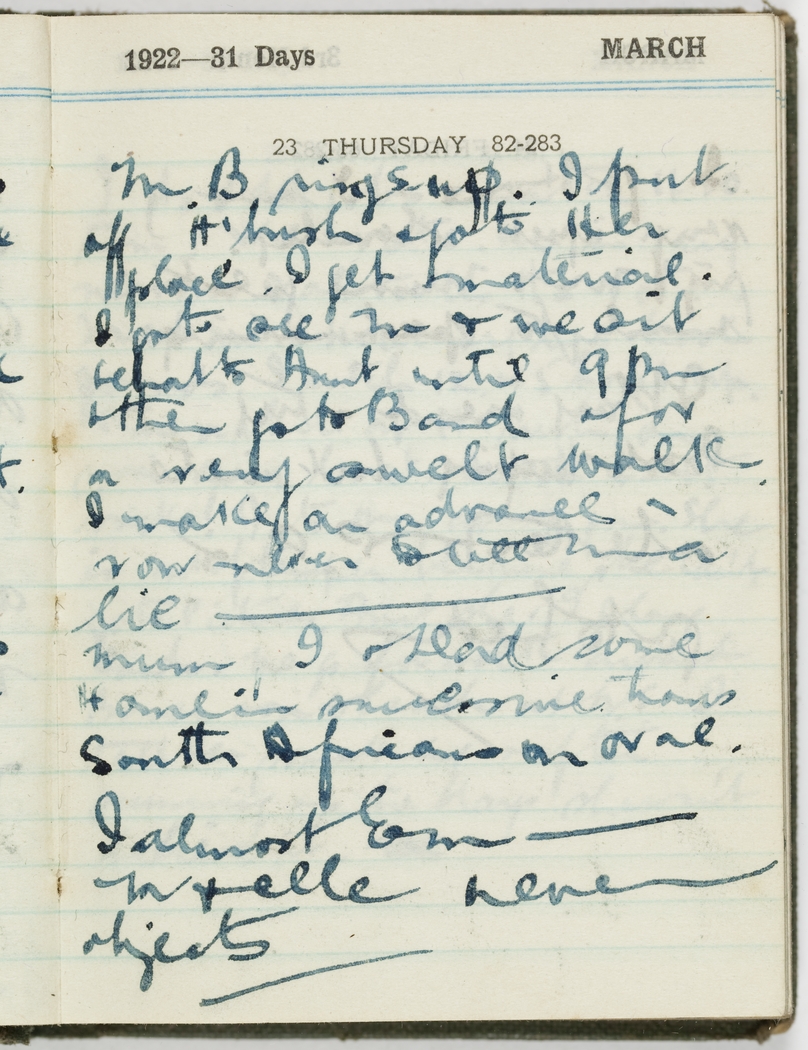 1922—31 Days MARCH
23 THURSDAY 82-283
M. B rings up. I put
off H' bush & go to Her
place. I get material.
I go to see M & we sit
Aunt until 9 pm
then go to Band & for
a very swelt walk.
I make an advance –
row never a
lie
mum, I & Head some
trams
South Africans on oval.
I almost
M & elle never
objects